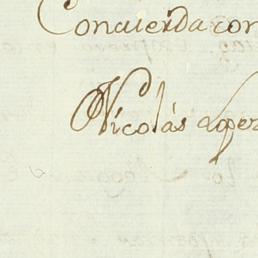 Concuerda con
Nicolás Lopez